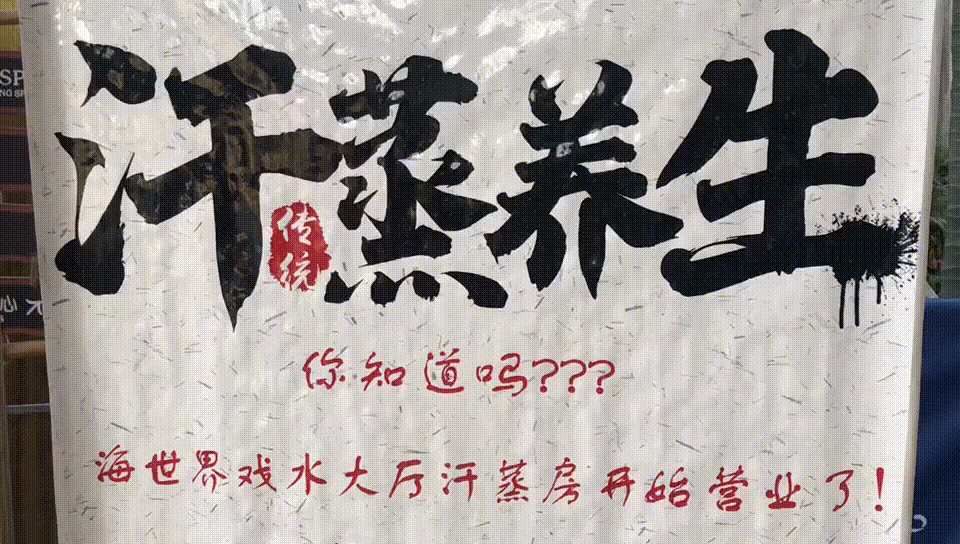 汗蒸养生
传统
你知道吗???
海世界戏水大厅汗蒸房开始营业了!